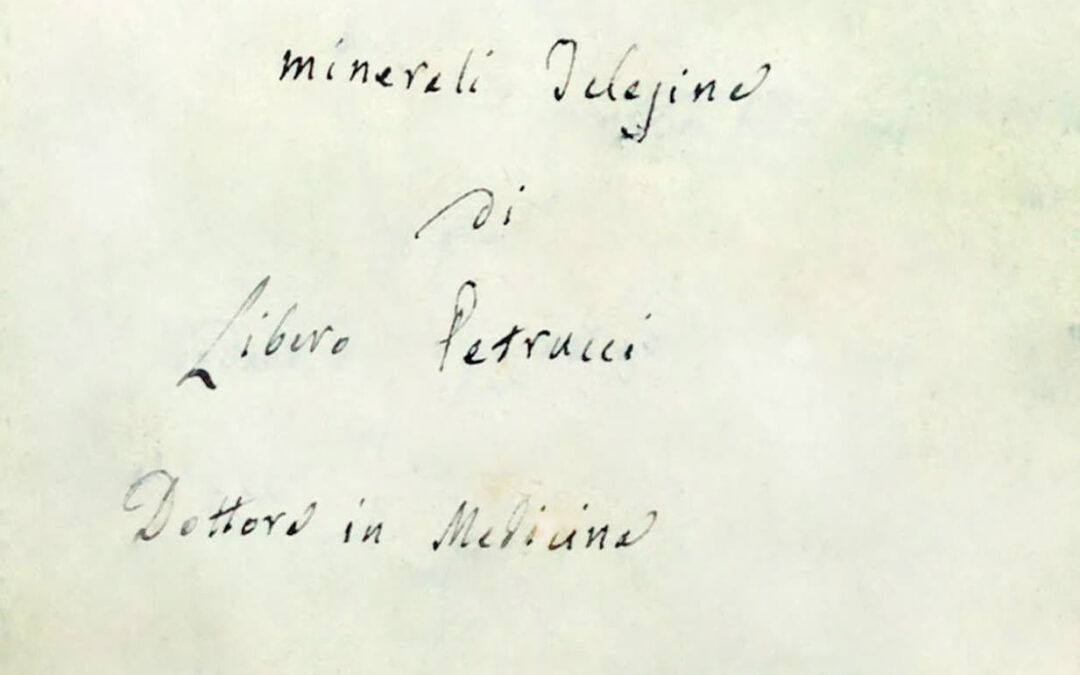 minerali Telesine
di
Libero Petrucci
Dottore in Medicina